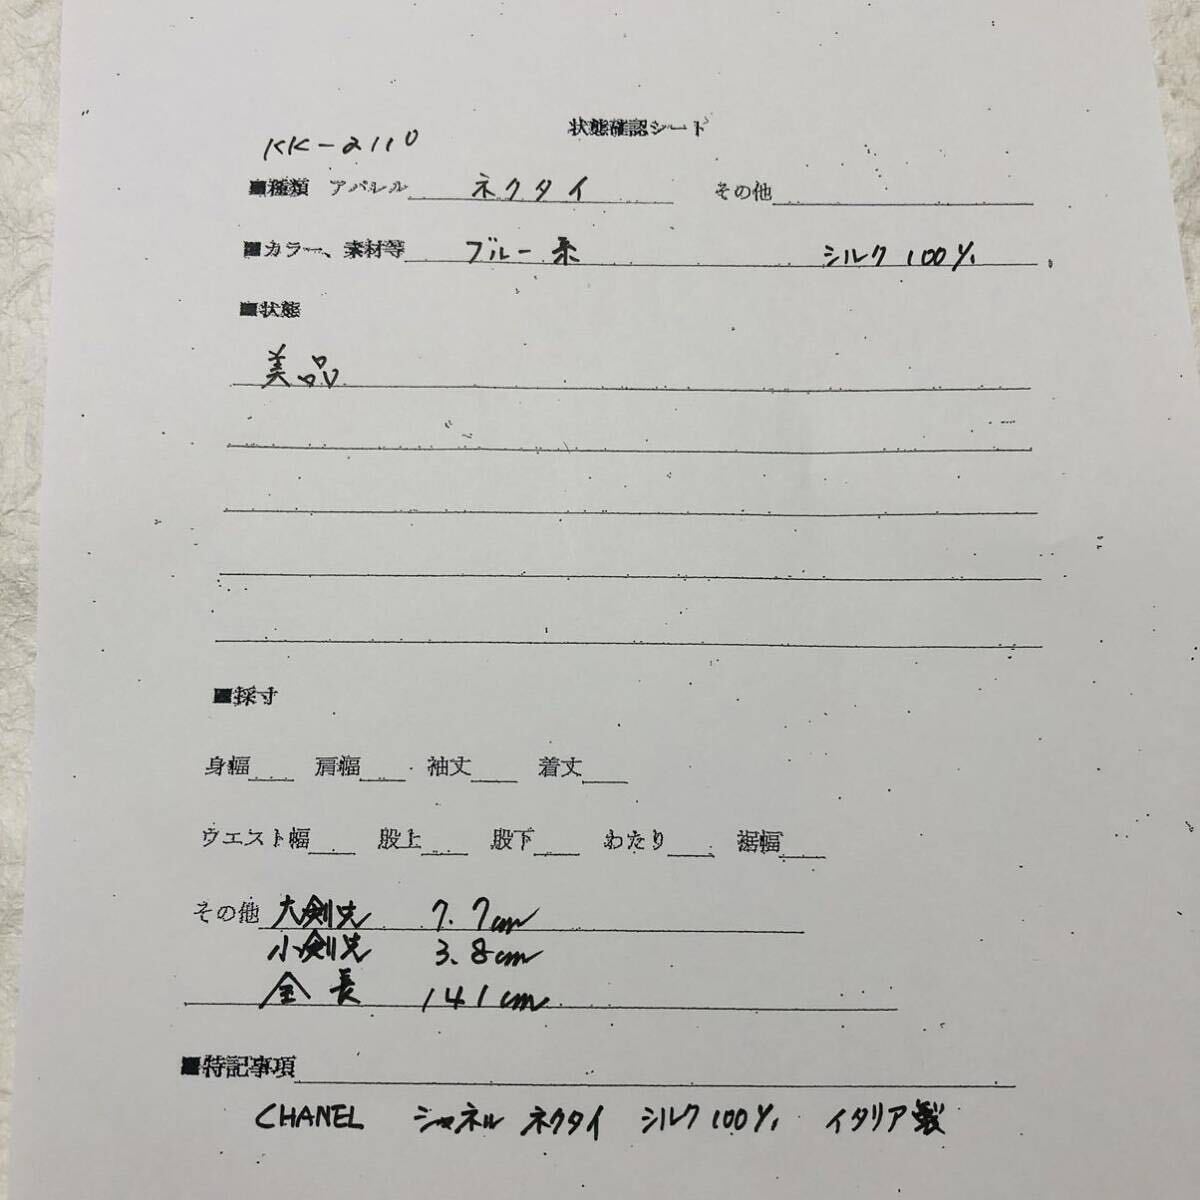 状態確認シート
KK-2110
■種類 アパレル ネクタイ その他
■カラー、素材等 ブルー系 シルク 100%
■状態
美品
■採寸
身幅 肩幅 袖丈 着丈
ウエスト幅 股上 股下 わたり 裾幅
その他 大剣先 7.7cm
小剣先 3.8cm
全長 141cm
■特記事項
CHANEL シャネル ネクタイ シルク100% イタリア製